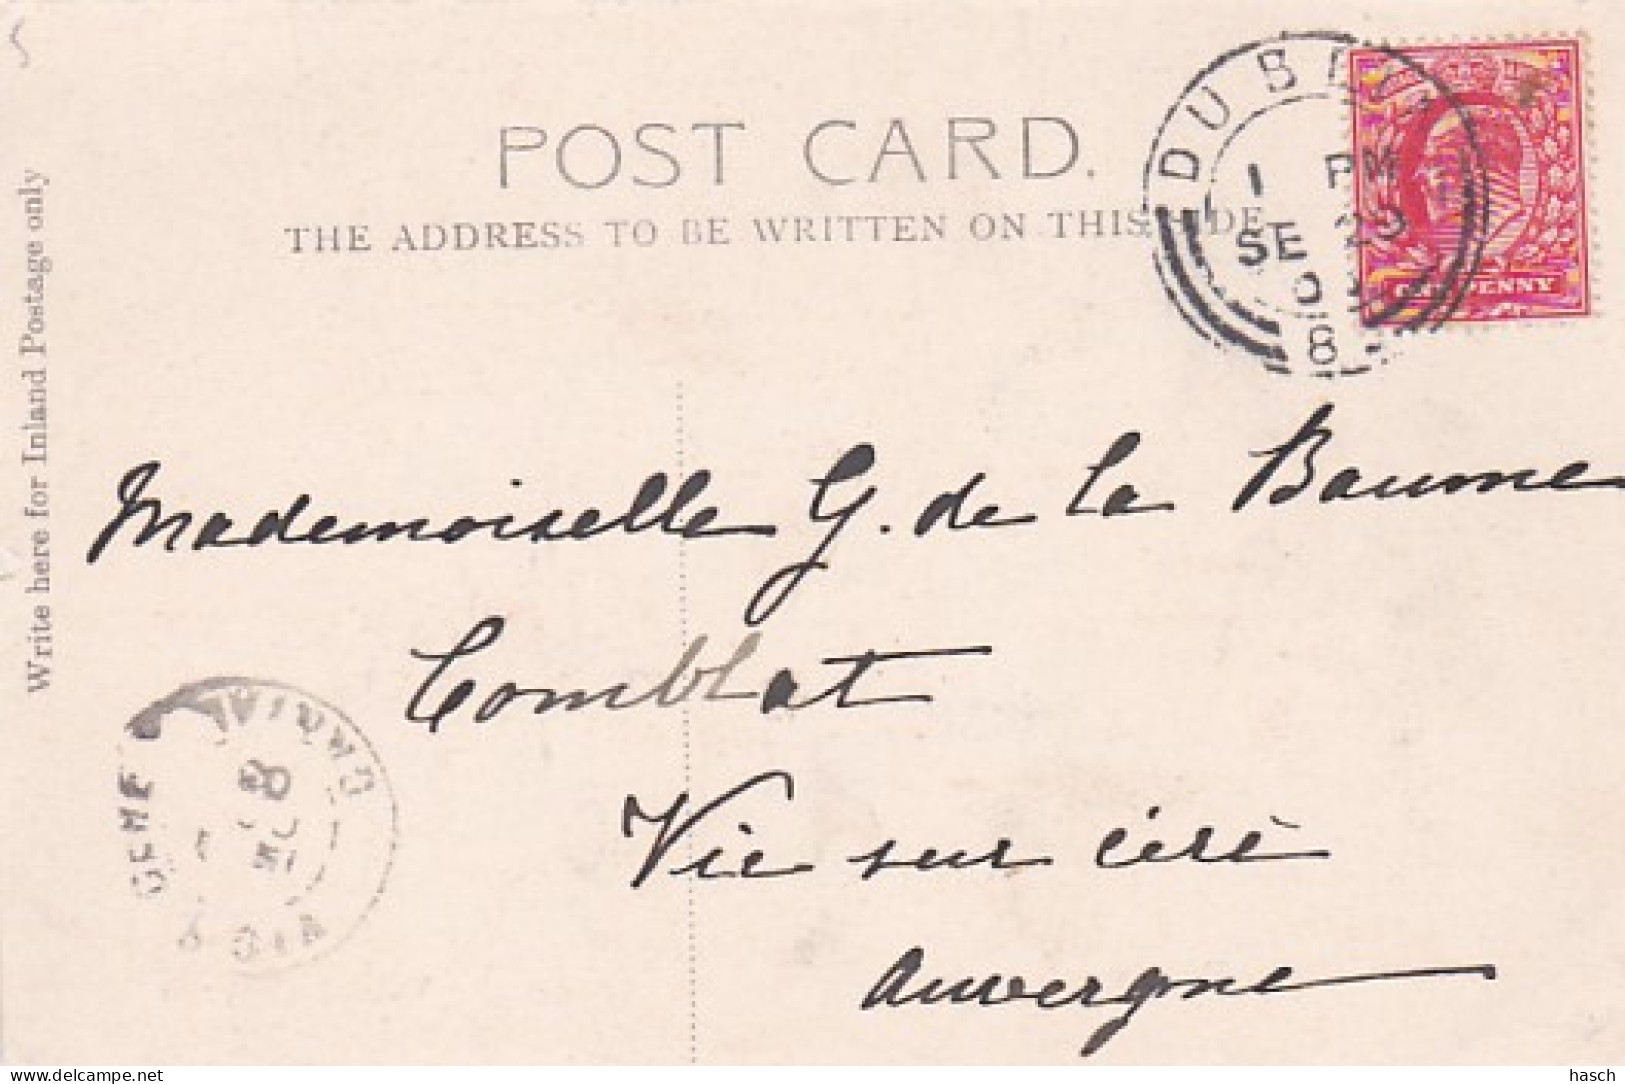 POST CARD.
THE ADDRESS TO BE WRITTEN ON THIS SIDE
Write here for Inland Postage only
DUBLIN
1 PM
SE 29
0
8
PENNY
Mademoiselle G. de la Baume
Comblat
Vic sur cérè
Auvergne
delcampe.net
hasch